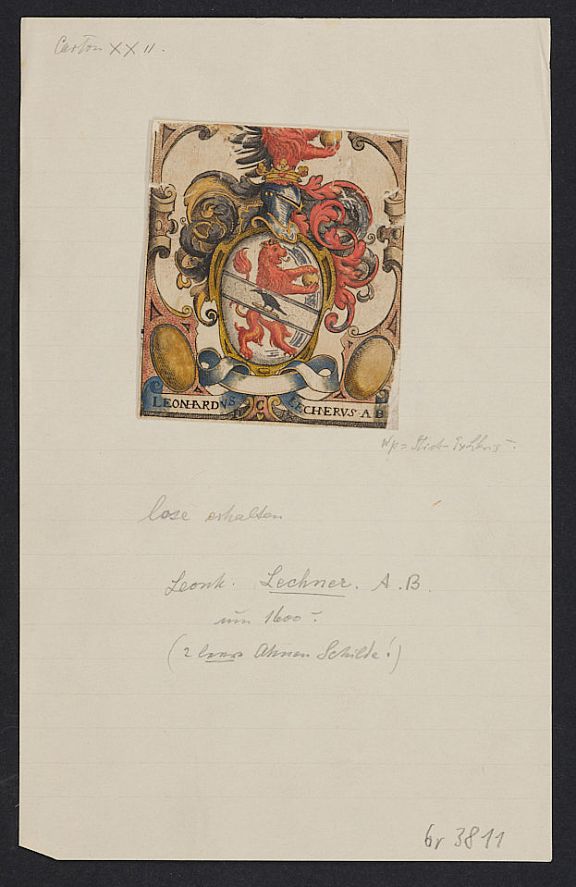 Carton XXII.
LEONHARDVS LECHERVS A B
Wp = Stich - Exlibris -.
lose erhalten
Leonh. Lechner. A.B.
um 1600 -.
(2 leere Ahnen Schilde!)
br 3811